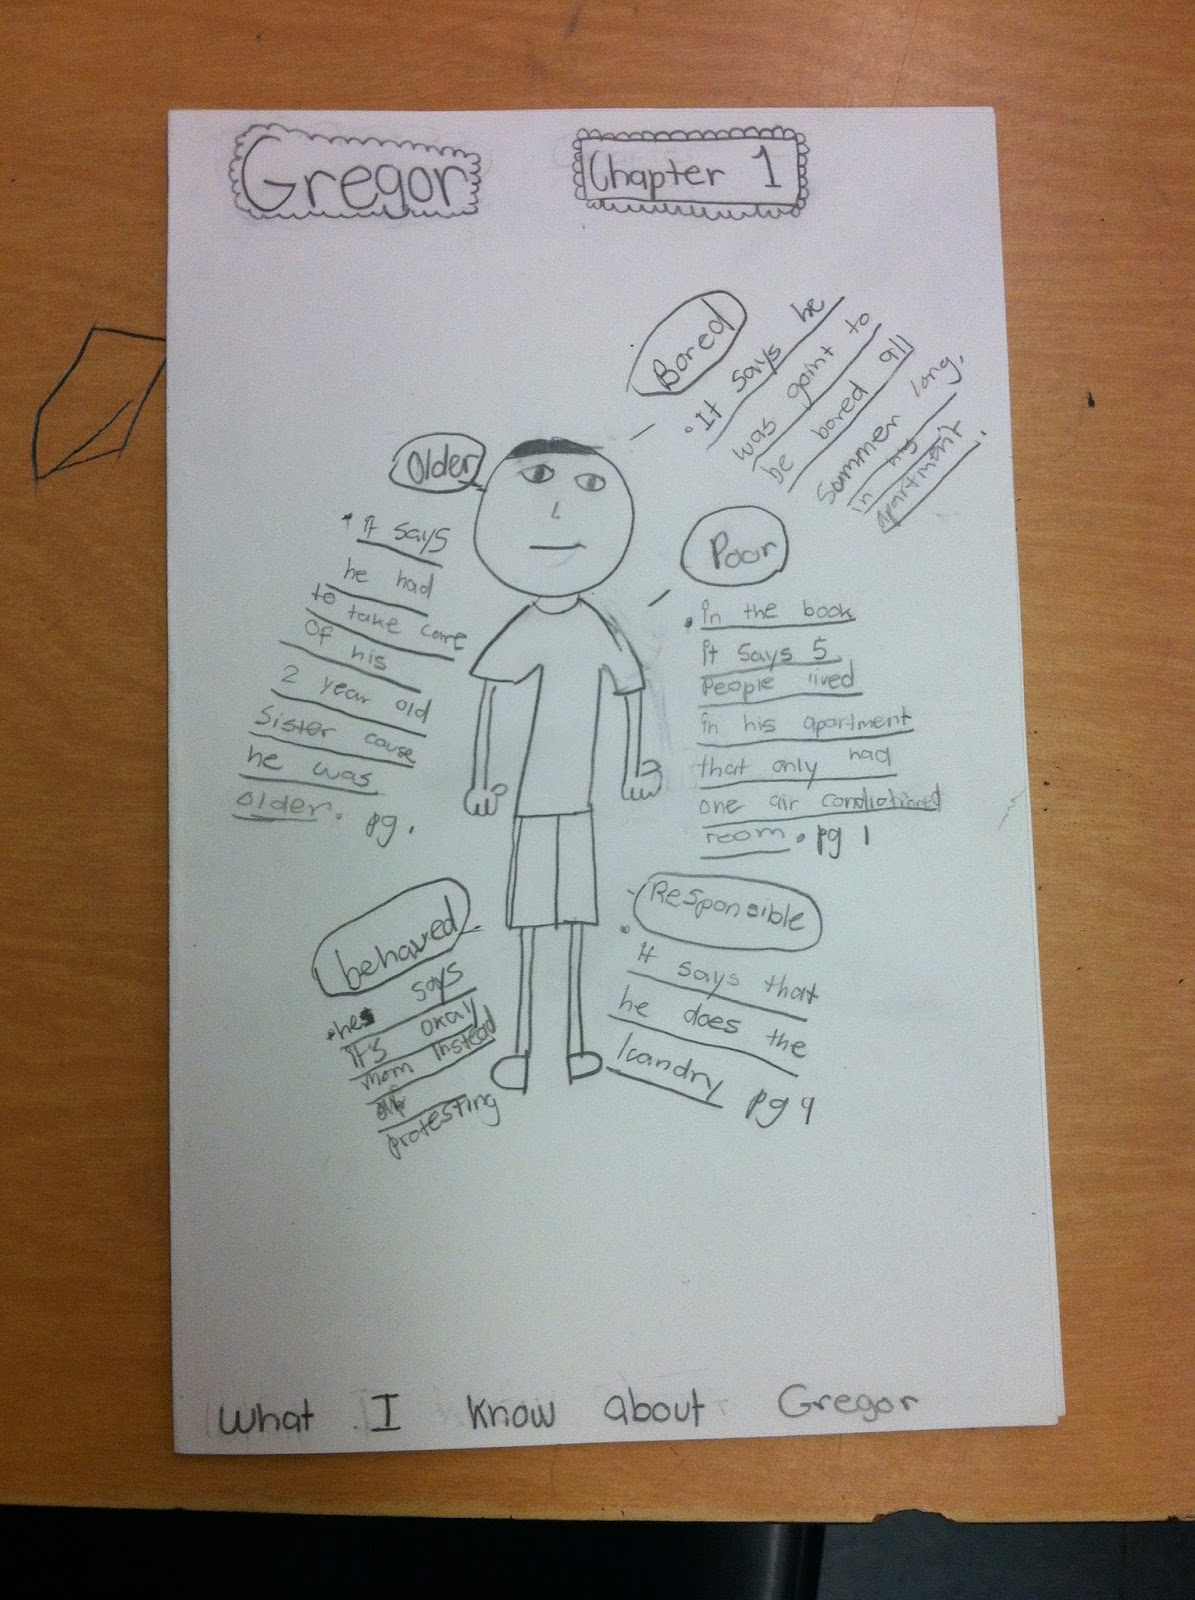 Gregor
Chapter 1
Bored
• It says he
was goint to
be bored all
Summer long.
in my
apartment.
Older
• it says
he had
to take care
Of his
2 year old
Sister cause
he was
older. pg.
Poor
• in the book
it says 5
People lived
in his apartment
that only had
one air condictioned
room. pg 1
behaved
• he says
it's okay
mom instead
of
protesting
Responsible
• It says that
he does the
laundry pg 9
What I know about Gregor